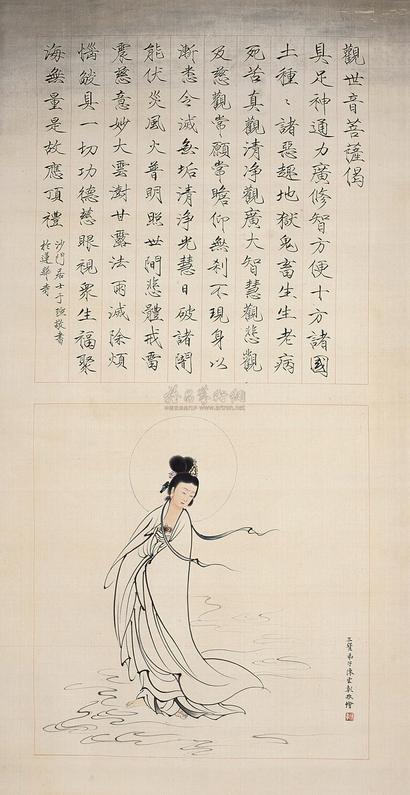 觀世音菩薩偈
具足神通力廣修智方便十方諸國
土種〻諸惡趣地獄鬼畜生生老病
死苦真觀清淨觀廣大智慧觀悲觀
及慈觀常願常瞻仰無刹不現身以
漸悉令滅無垢清淨光慧日破諸闇
能伏災風火普明照世間悲體戒雷
震慈意妙大雲澍甘露法雨滅除煩
惱燄具一切功德慈眼視衆生福聚
海無量是故應頂禮
沙門居士于 敬書
於蓮華
三寶弟子陳 敬繪
www.artron.net